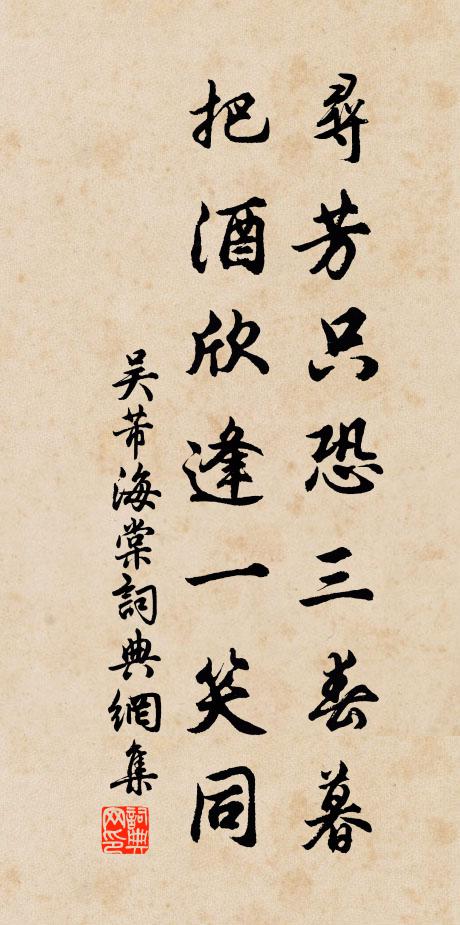 尋芳只恐三春暮
把酒欣逢一笑同
吴芾海棠詞典網集
詞典
网印